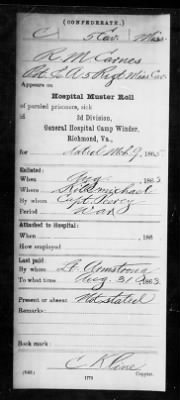 (CONFEDERATE.)
C 5 Cav. Miss.
R M Carnes
Co. A 5 Regt Miss Cav.
Appears on
Hospital Muster Roll
of paroled prisoners, sick
of 3d Division,
General Hospital Camp Winder,
Richmond, Va.,
for dated Mch 9, 1865
Enlisted:
When Aug, 1863
Where Kilmichael
By whom Capt.
Period War
Attached to hospital:
When, 186
How employed
Last paid:
By whom Lt. Armstrong
To what time Aug. 31, 1863.
Present or absent Not stated
Remarks:
Book mark:
C Kline
Copyist.